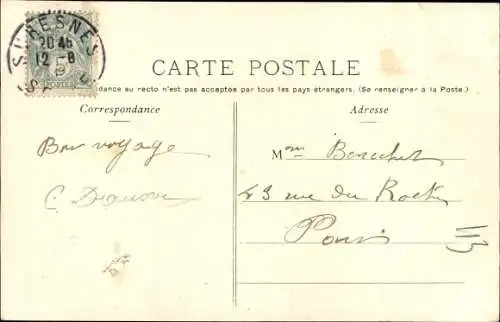 SURESNES
20 45
12 - 8
POSTES
CARTE POSTALE
dance au recto n'est pas acceptée par tous les pays étrangers. (Se renseigner à la Poste.)
Correspondance
Adresse
Bon voyage
Mme
43 rue du Rocher
Paris
113